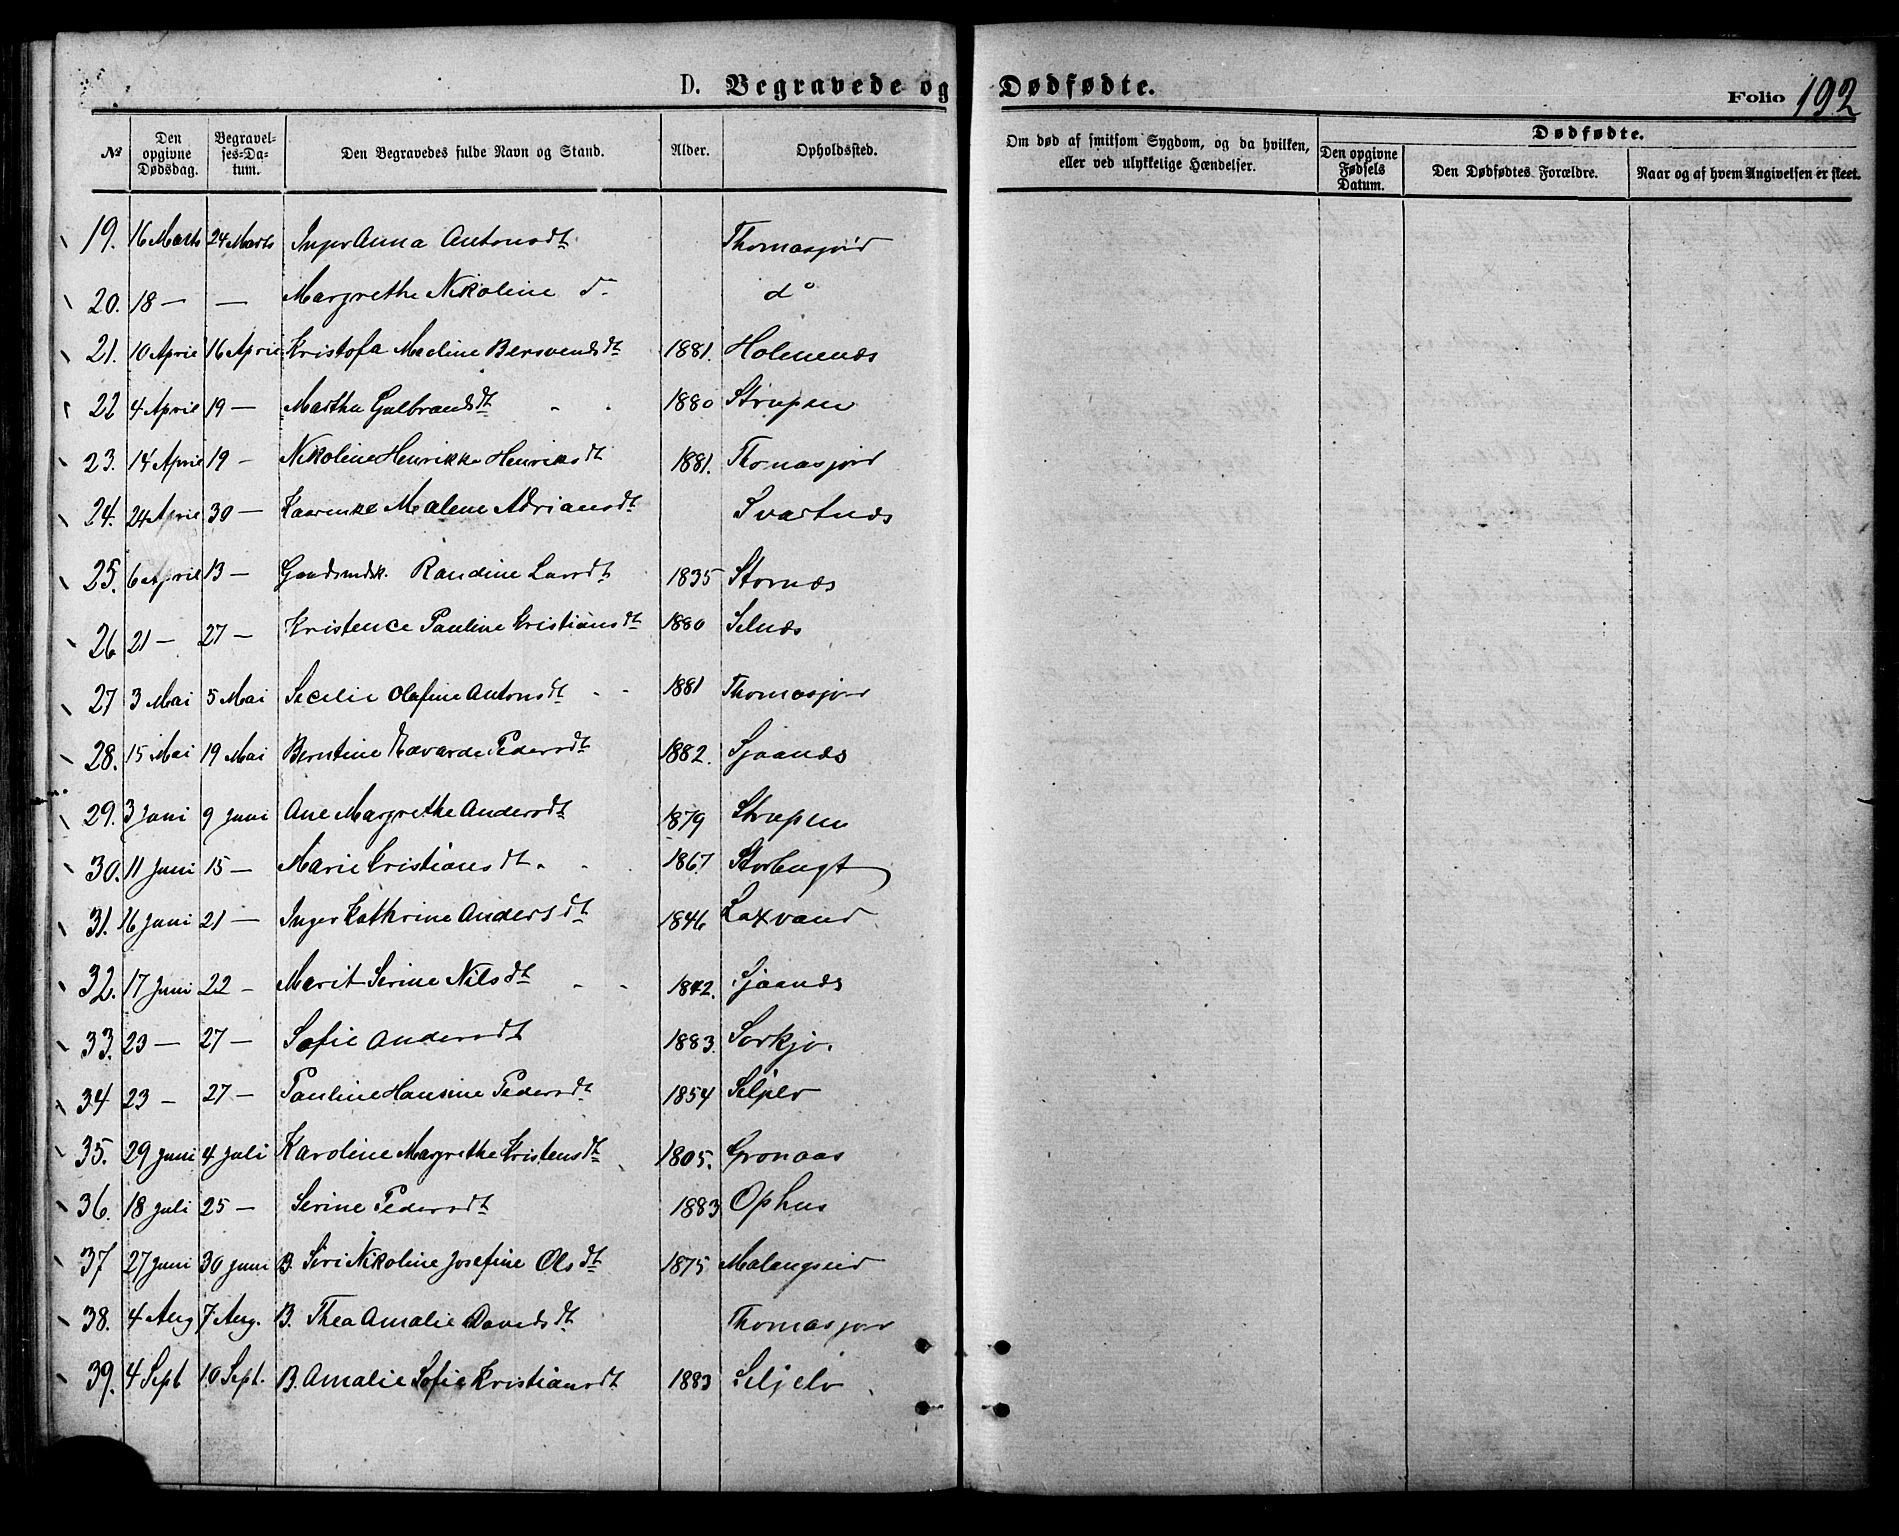 D. Begravede og Dødfødte. Folio 192
№ Den opgivne Dødsdag. Begravelses-Datum. Den Begravedes fulde Navn og Stand. Alder. Opholdssted. Om død af smitsom Sygdom, og da hvilken, eller ved ulykkelige Hændelser. Dødfødte. Den opgivne Fødsels Datum. Den Dødfødtes Forældre. Naar og af hvem Angivelsen er skeet.
19. 16 Marts 24 Marts Inger Anna Antonsdt Thomasjord
20. 18 — — Margrethe Nikoline d. do
21. 10 April 16 April Kristofa Medine Bersvendsdt 1881. Holmenæs
22 4 April 19 — Martha Gulbrandsdt 1880 Strupen
23. 14 April 19 — Nikoline Henrikke Henriksdt 1881. Thomasjord
24. 24 April 30 — Malene Adriansdt Svartnæs
25. 6 April 13 — Randine Larsdt 1835 Stornæs
26 21 — 27 — Kristence Pauline Kristiansdt 1880 Selnæs
27 3 Mai 5 Mai Secelie Olafine Antonsdt 1881 Thomasjord
28. 15 Mai 19 Mai Berntine Edvarde Pedersdt 1882. Sjaanæs
29. 3 Juni 9 Juni Ane Margrethe Andersdt 1879 Strupen
30. 11 Juni 15 — Marie Kristiansdt 1867 Storbugt
31. 16 Juni 21 — Inger Kathrine Andersdt 1846 Laxvand
32. 17 Juni 22 — Marit Serine Nilsdt 1842. Sjaanæs
33. 23 — 27 — Sofie Andersdt 1883. Sørkjo.
34 23 — 27 — Pauline Hansine Pedersdt 1854 Seljelv
35. 29 Juni 4 Juli Karoline Margrethe Kristensdt 1805. Grønaas
36. 18 Juli 25 — Serine Pedersdt 1883 Ophus
37 27 Juni 30 Juni B. Siri Nikoline Josefine Olsdt 1875 Malangseid
38. 4 Aug 7 Aug. B. Thea Amalie Davidsdt Thomasjord
39. 4 Sept 10 Sept. B. Amalie Sofie Kristiansdt 1883 Seljelv